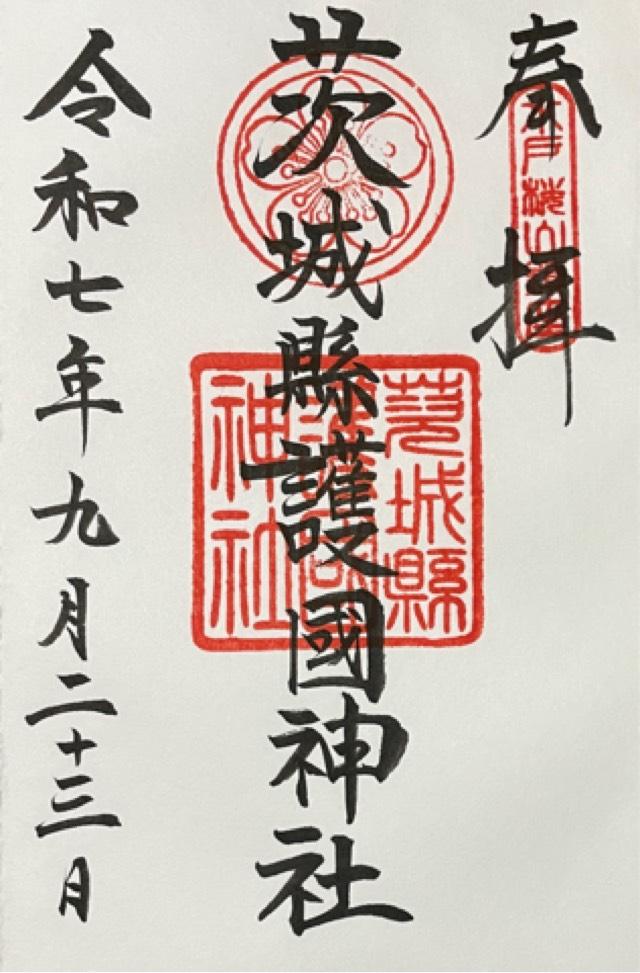 奉拝
茨城縣護國神社
令和七年九月二十三日
茨城縣
護國
神社